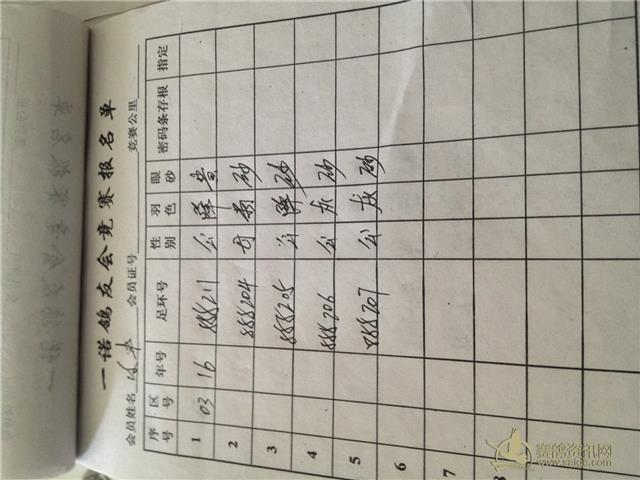 一诺鸽友会竞赛报名单
会员姓名 会员证号 竞赛公里
序号 区号 年号 足环号 性别 羽色 眼砂 密码条存根 指定
1 03 16 888211 公 黄
2 888204 砂
3 888205 公 砂
4 888206 公 灰 砂
5 888207 公 灰 砂
6
7
8
赛鸽资讯网
www.saige.com